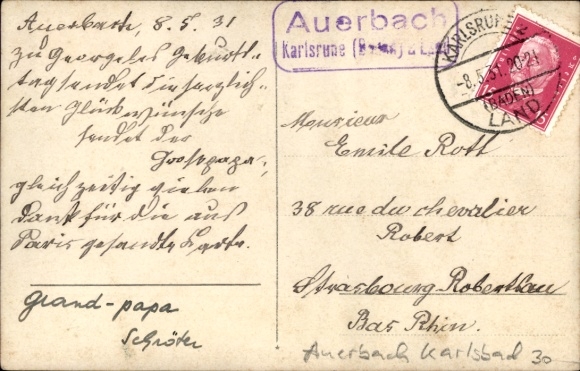 Auerbach, 8.5.31
zu Georgeles Geburts-
tag sendet die herzlich-
sten Glückwünsche
sendet der
Grosspapa,
gleichzeitig vielen
Dank für die aus
Paris gesandte Karte.
grand-papa
Schröter
Auerbach
Karlsruhe (Baden) Land
KARLSRUHE
-8.5.31. 20-21
(BADEN)
LAND
Monsieur
Emile Rott
38 rue du chevalier
Robert
Strasbourg-Robertsau
Bas Rhin.
Auerbach Karlsbad 30